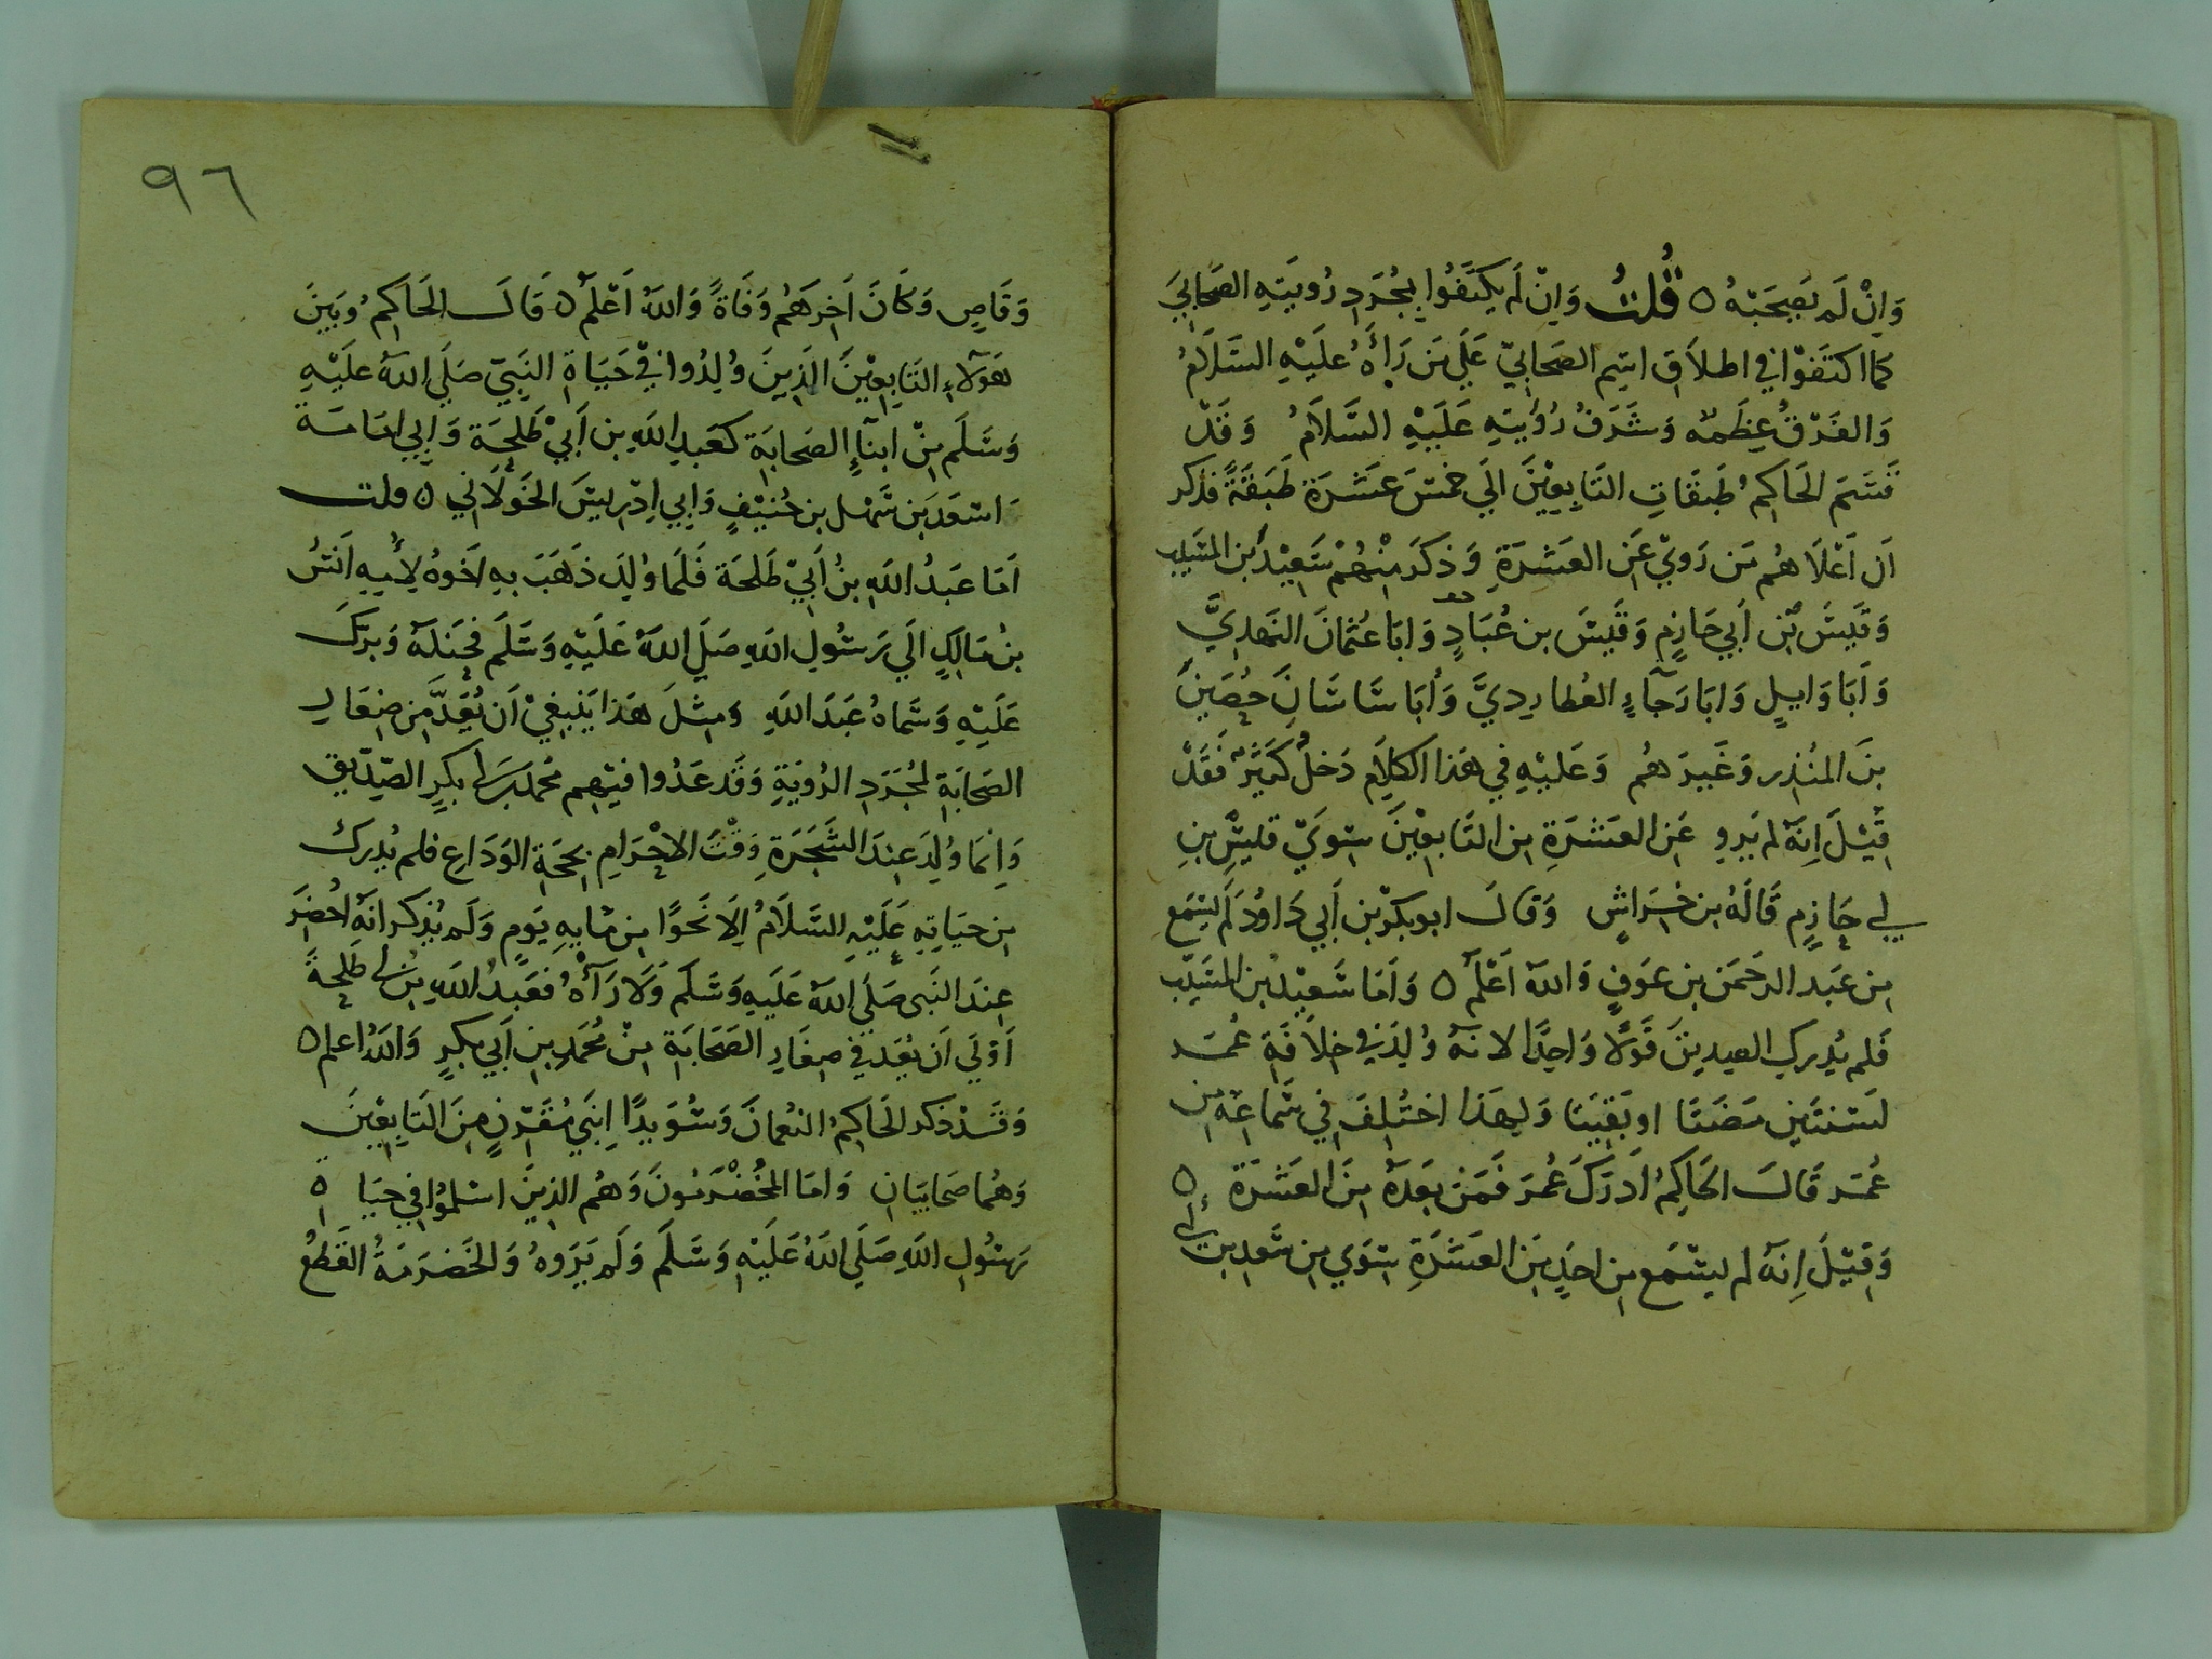 وَاِنْ لَم يَصحَبْهُ ٥ قُلتُ وَاِنْ لَم يَكتَفُوا بِمُجَرَدِ رُويَتِهِ الصَحَابِيَ
كما اكتَفَوْا في اطلاَقِ اسْمِ الصَحابِيّ عَلَي مَن رَأىَهُ عَلَيْهِ السَّلاَمُ
وَالفَرْقُ عِظَمُه وَشَرَفُ رُؤيَتِهِ عَلَيْهِ السَّلاَمُ وَقَدْ
قَسَّمَ الحَاكِمُ طَبَقَاتِ التَابِعِيْنَ الَي خمْسَ عَشَرَة طَبَقَةً فذكر
اَن اَعْلَاهُم مَن رَوَيْ عَنِ العَشَرَةِ وَذكَرَ مِنْهُمْ سَعِيْدَ بن المسَيب
وَقَيسَ بْن اَبي حَازِمٍ وَقَيسَ بن عُبَادٍ وَابَا عُثمانَ النَهدِيَّ
وَاَبَا وَايلٍ وَابَا رَجَآءٍ العُطارِدِيَّ وَاَبَا سَاسَانَ حُضَينَ
بنَ المنُذِر وَغَيرَهُم وَعَليْهِ في هَذا الكلَامِ دَخلٌ كَثيرٌ فَقَدْ
قِيْلَ اِنَهُ لم يَروِ عَنِ العَشَرَةِ مِن التَابِعِيْنَ سِوَيْ قيسِ بنِ
ابي حَازِمٍ قَالَهُ بن خْرَاشٍ وَقالَ ابو بكرْ بن اَبي دَاوُدَ لَم يَسمَع
مِن عَبد الرحَمَن بن عَوفٍ وَاللهُ اَعْلَم ٥ وَاَمَا سَعِيْدُ بن المسَيّب
فَلم يُدرِكِ الصديقَ قَوْلًا وَاحِدًا لانهُ وُلِدَ في خِلاَفَةِ عُمَر
لسَنتَينِ مَضَتَا او بَقِيَتا وَلِهَذا اختُلِفَ في سَمَاعِهِ مِن
عُمَر قَالَ الحَاكِمُ اَدْرَكَ عُمَرَ فَمَنْ بَعدَهُ مِنَ العَشَرَة ٥
وَقِيْلَ اِنَهُ لم يَسْمَع مِن احَدٍ مِنَ العَشَرَةِ سِوَي مِن سَعدِ بن ابي
٩٦
وَقَاصٍ وَكاَنَ اَخِرَهُم وَفَاةً وَاللهُ اَعْلَمُ ٥ قَالَ الحَاكِمُ وَبَينَ
هَوُلاَءِ التَابِعِيْنَ الذِينَ وُلِدُوا فيْ حَيَاة النَبِيّ صَلَي اللهُ عَلَيْهِ
وَسَلَم مِنْ ابنآءِ الصَحَابَةِ كعَبدِ اللهِ بن اَبيْ طَلحَة وَابِي امَامَة
اسْعَدَ بَن سَهْل بن حُنَيْفٍ وَابِي اِدْرِيسَ الخَوَلَاني ٥ قلت
اَمَا عَبدُ اللهِ بنُ اَبيْ طَلحَة فَلَما وُلِدَ ذَهَبَ بهِ اَخُوهُ لِاُمِهِ اَنَسُ
بنُ مَالِكٍ الَي رَسُولِ اللهِ صَلَي اللهُ عَلَيْهِ وَسَلَم فحَنكَهُ وَبَرّكَ
عَلَيْهِ وَسَماهُ عَبدَ اللهِ وَمِثلَ هَذا يَنبغِيْ اَن يُعَدَّ مِن صِغَارِ
الصَحَابَةِ لمجَرَدِ الرُؤيَةِ وَقَد عَدُوا فيهِم محمد بن ابي بَكرٍ الصِّدِيق
وَاِنمَا وُلِدَ عِندَ الشَجَرَةِ وَقْتَ الاِحْرَامِ بِحَجَةِ الوَدَاعِ فلم يُدرك
مِن حَيَاتِهِ عَلَيْهِ السَلاَمُ اِلَا نَحوًا مِن مَايهِ يَومٍ وَلَم يُذكر انهُ اُحضِرَ
عِندَ النَبي صَلَي اللهُ عَلَيهِ وَسَلَم وَلَا رَآهُ فعَبدُ اللهِ بْن ابي طَلحَةَ
اَوْلَي اَن يُعَدَ في صِغَارِ الصَحَابَةِ مِنْ مُحَمَدِ بنِ اَبي بكرٍ وَاللهُ اعلم ٥
وَقَدْ ذَكر الحَاكِمُ النُعمانَ وَسُوَيدًا اِبنَي مُقَرّنٍ مِنَ التَابِعِيْنَ
وَهُما صَحَابِيَانِ وَامَا المخُضْرَمُونَ وَهُم الذِينَ اسْلمُوا في حيَاة
رَسُولِ اللهِ صَلَي اللهُ عَلَيْهِ وَسَلَم وَلَم يَرَوهُ وَالخَضرَمَةُ القَطعُ